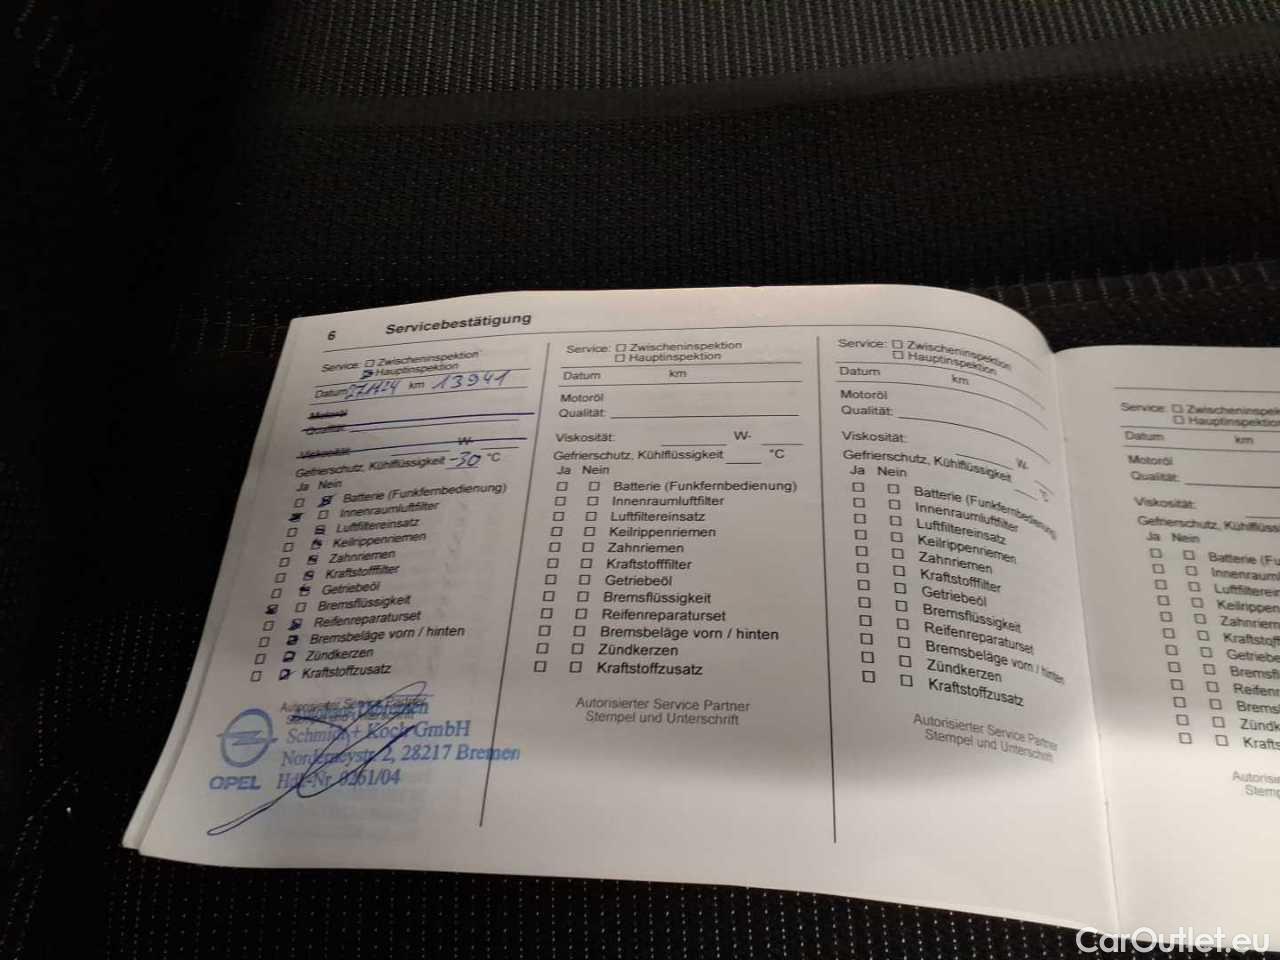 6 Servicebestätigung
Service: Zwischeninspektion
Hauptinspektion
Datum km 13941
Motoröl
Qualität:
Viskosität: W-
Gefrierschutz, Kühlflüssigkeit -30 °C
Ja Nein
Batterie (Funkfernbedienung)
Innenraumluftfilter
Luftfiltereinsatz
Keilrippenriemen
Zahnriemen
Kraftstofffilter
Getriebeöl
Bremsflüssigkeit
Reifenreparaturset
Bremsbeläge vorn / hinten
Zündkerzen
Kraftstoffzusatz
Autorisierter Service Partner
Stempel und Unterschrift
Schmidt + Koch GmbH
Norderneystr. 2, 28217 Bremen
OPEL Hdl-Nr. 0261/04
Service: Zwischeninspektion
Hauptinspektion
Datum km
Motoröl
Qualität:
Viskosität: W-
Gefrierschutz, Kühlflüssigkeit °C
Ja Nein
Batterie (Funkfernbedienung)
Innenraumluftfilter
Luftfiltereinsatz
Keilrippenriemen
Zahnriemen
Kraftstofffilter
Getriebeöl
Bremsflüssigkeit
Reifenreparaturset
Bremsbeläge vorn / hinten
Zündkerzen
Kraftstoffzusatz
Autorisierter Service Partner
Stempel und Unterschrift
Service: Zwischeninspektion
Hauptinspektion
Datum km
Motoröl
Qualität:
Viskosität: W-
Gefrierschutz, Kühlflüssigkeit °C
Ja Nein
Batterie (Funkfernbedienung)
Innenraumluftfilter
Luftfiltereinsatz
Keilrippenriemen
Zahnriemen
Kraftstofffilter
Getriebeöl
Bremsflüssigkeit
Reifenreparaturset
Bremsbeläge vorn / hinten
Zündkerzen
Kraftstoffzusatz
Autorisierter Service Partner
Stempel und Unterschrift
Service: Zwischeninspe
Hauptinspektio
Datum km
Motoröl
Qualität:
Viskosität:
Gefrierschutz, Kühlflüss
Ja Nein
Batterie (Fu
Innenraum
Luftfilterein
Keilrippen
Zahnriem
Kraftstoff
Getriebe
Bremsfl
Reifen
Brems
Zündk
Krafts
Autorisie
Stemp
CarOutlet.eu